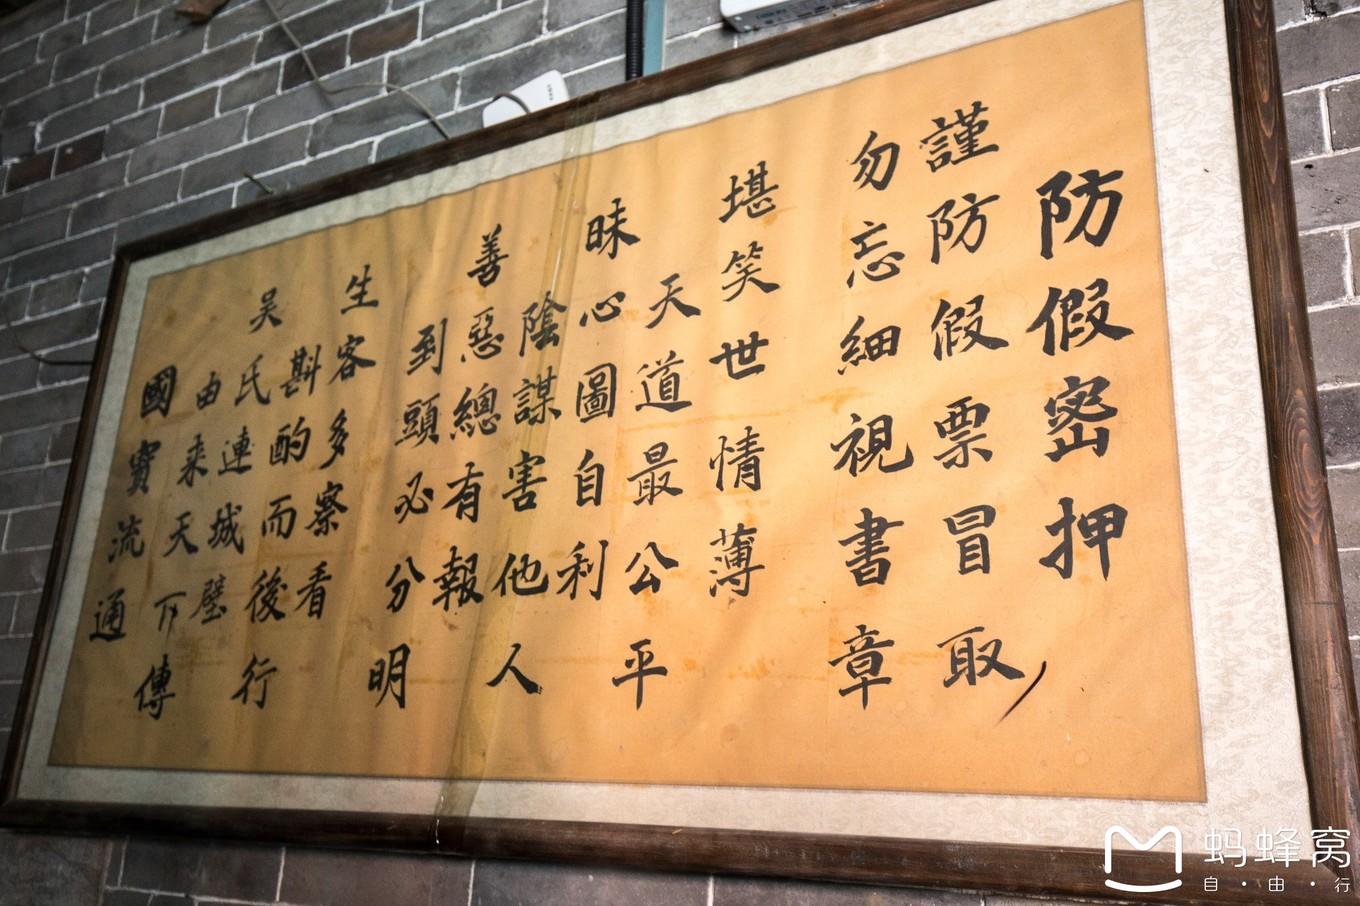 防假密押
謹防假票冒取
勿忘細視書章
堪笑世情薄
天道最公平
昧心圖自利
陰謀害他人
善惡總有報
到頭必分明
生客多察看
斟酌而後行
吴氏連城璧
由来天下傳
國寶流通
蚂蜂窝
自·由·行